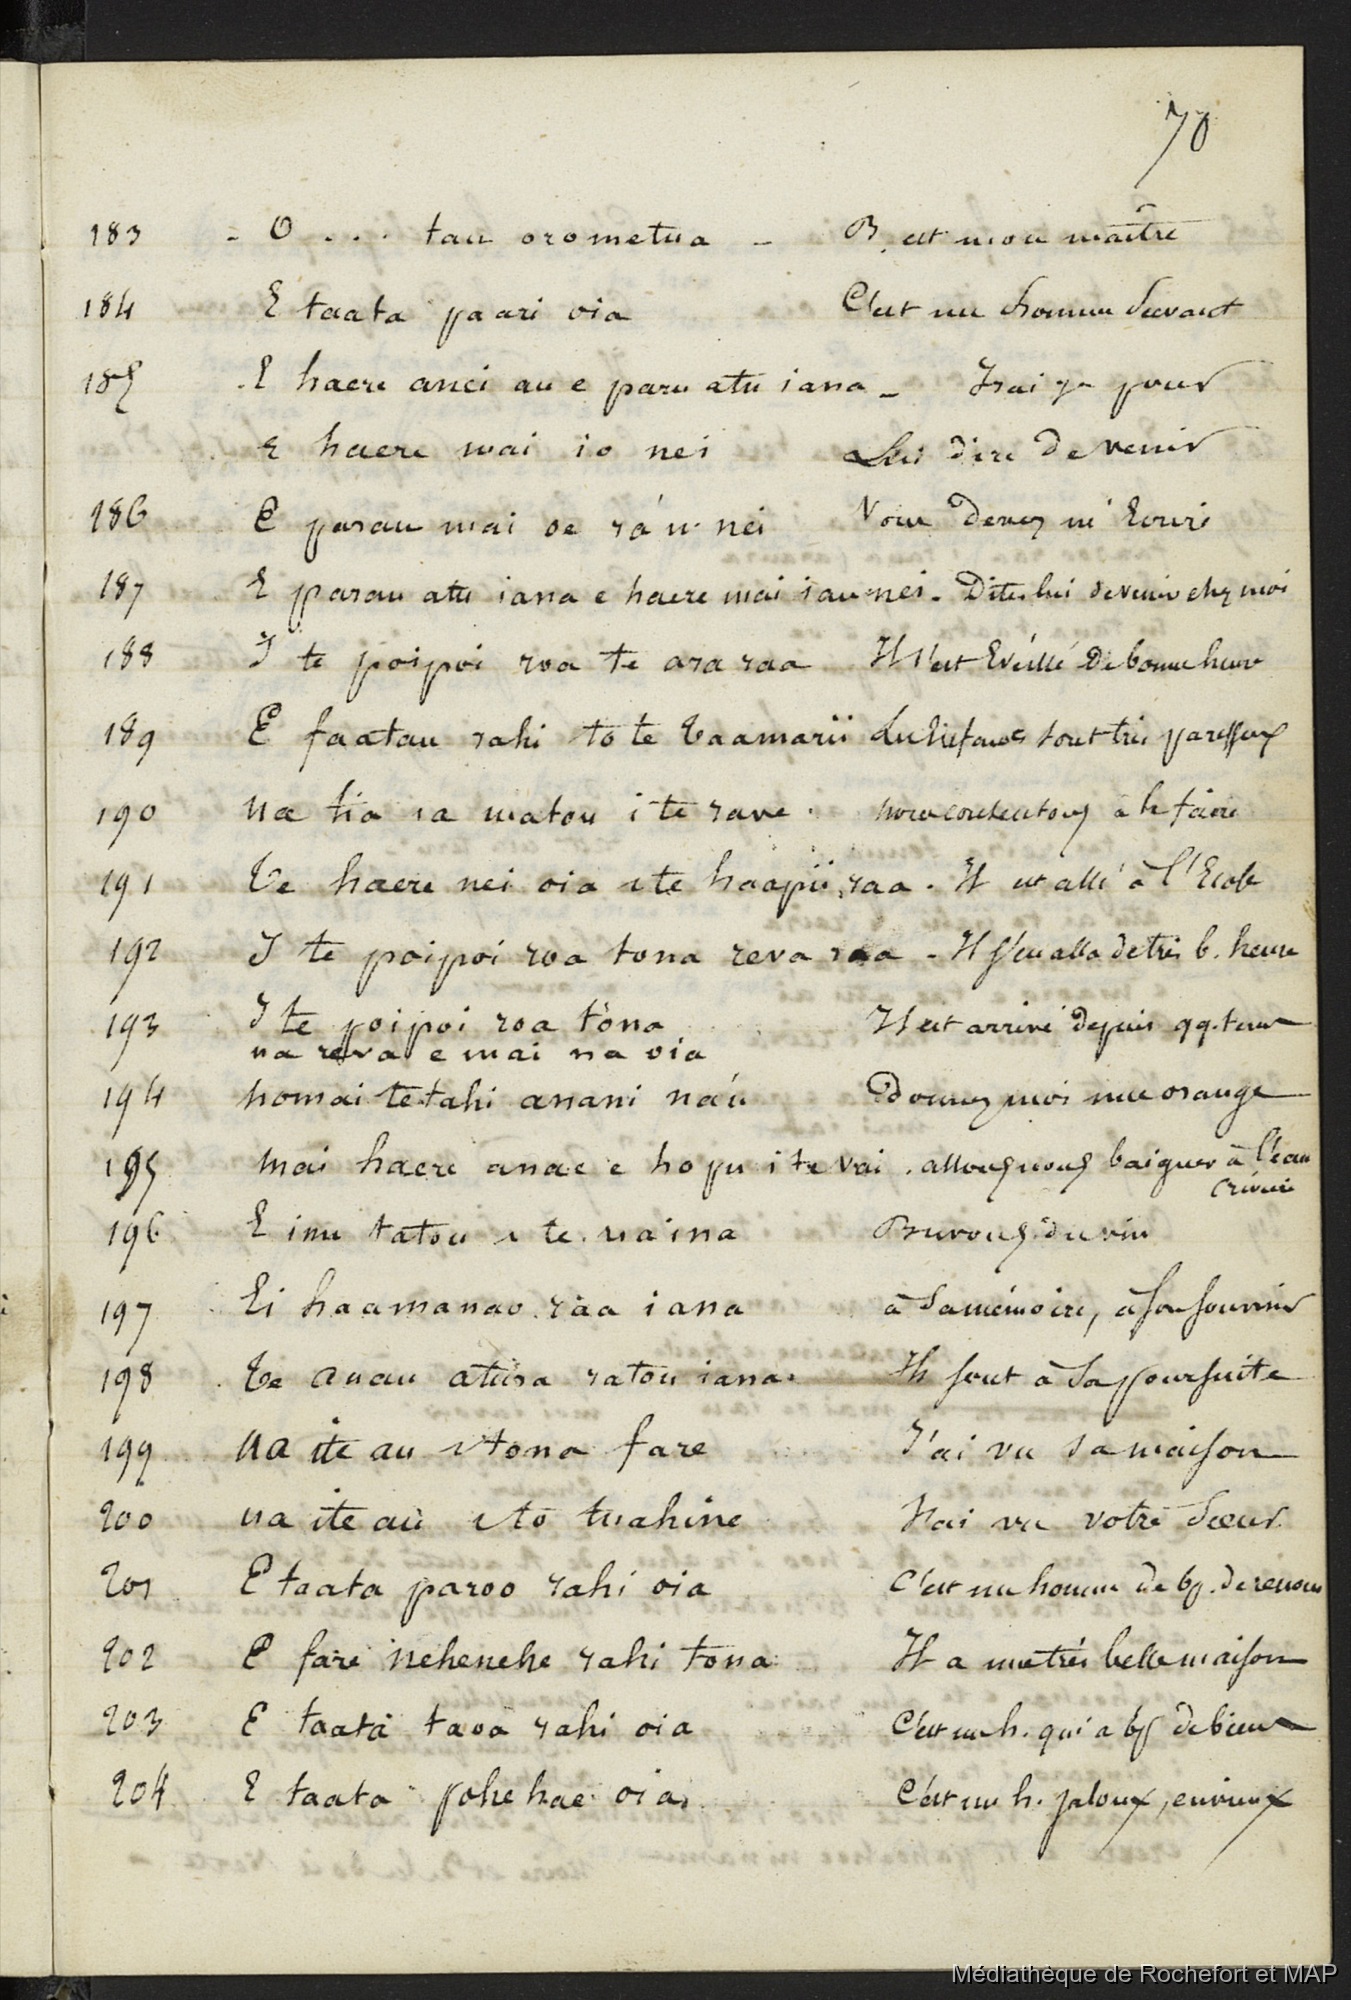 70
183 - O .... tau orometua - B. est mon maître
184 E taata paari oia C'est un homme Savant
185 .E haere anei au e parau atu iana - Irai je pour
e haere mai io nei Lui dire de venir
186 E parau mai oe ia'u nei Vous devez m'Ecrire
187 E parau atu iana e haere mai iau nei. Dites lui de venir chez moi
188 I te poipoi roa te ara raa Il s'est Eveillé De bonne heure
189 E faatau rahi to te taamarii Les Enfants sont très paresseux
190 ua tia ia matou i te rave. nous consentons à le faire
191 te haere nei oia i te haapii raa. Il est allé à l'Ecole
192 I te poipoi roa tona reva raa - Il s'en alla de très b. heure
193 I te poipoi roa tona Il est arrivé depuis qq. temps
ua reva e mai na oia
194 homai te tahi anani na'u Donnez moi une orange
195 Mai haere anae e hopu i te vai. allons nous baigner à l'eau
rivière
196 E inu tatou i te uaina Buvons du vin
197 Ei haamanao raa iana à Sa mémoire, à son souvenir
198 te auau atura ratou iana. Ils sont à Sa poursuite
199 ua ite au i tona fare J'ai vu sa maison
200 ua ite au i to tuahine J'ai vu votre Sœur
201 E taata paroo rahi oia C'est un homme de bp. de renom
202 E fare nehenehe rahi tona Il a une très belle maison
203 E taata taoa rahi oia C'est un h. qui a bp de biens
204 E taata pohehae oia. C'est un h. jaloux, envieux
Médiathèque de Rochefort et MAP